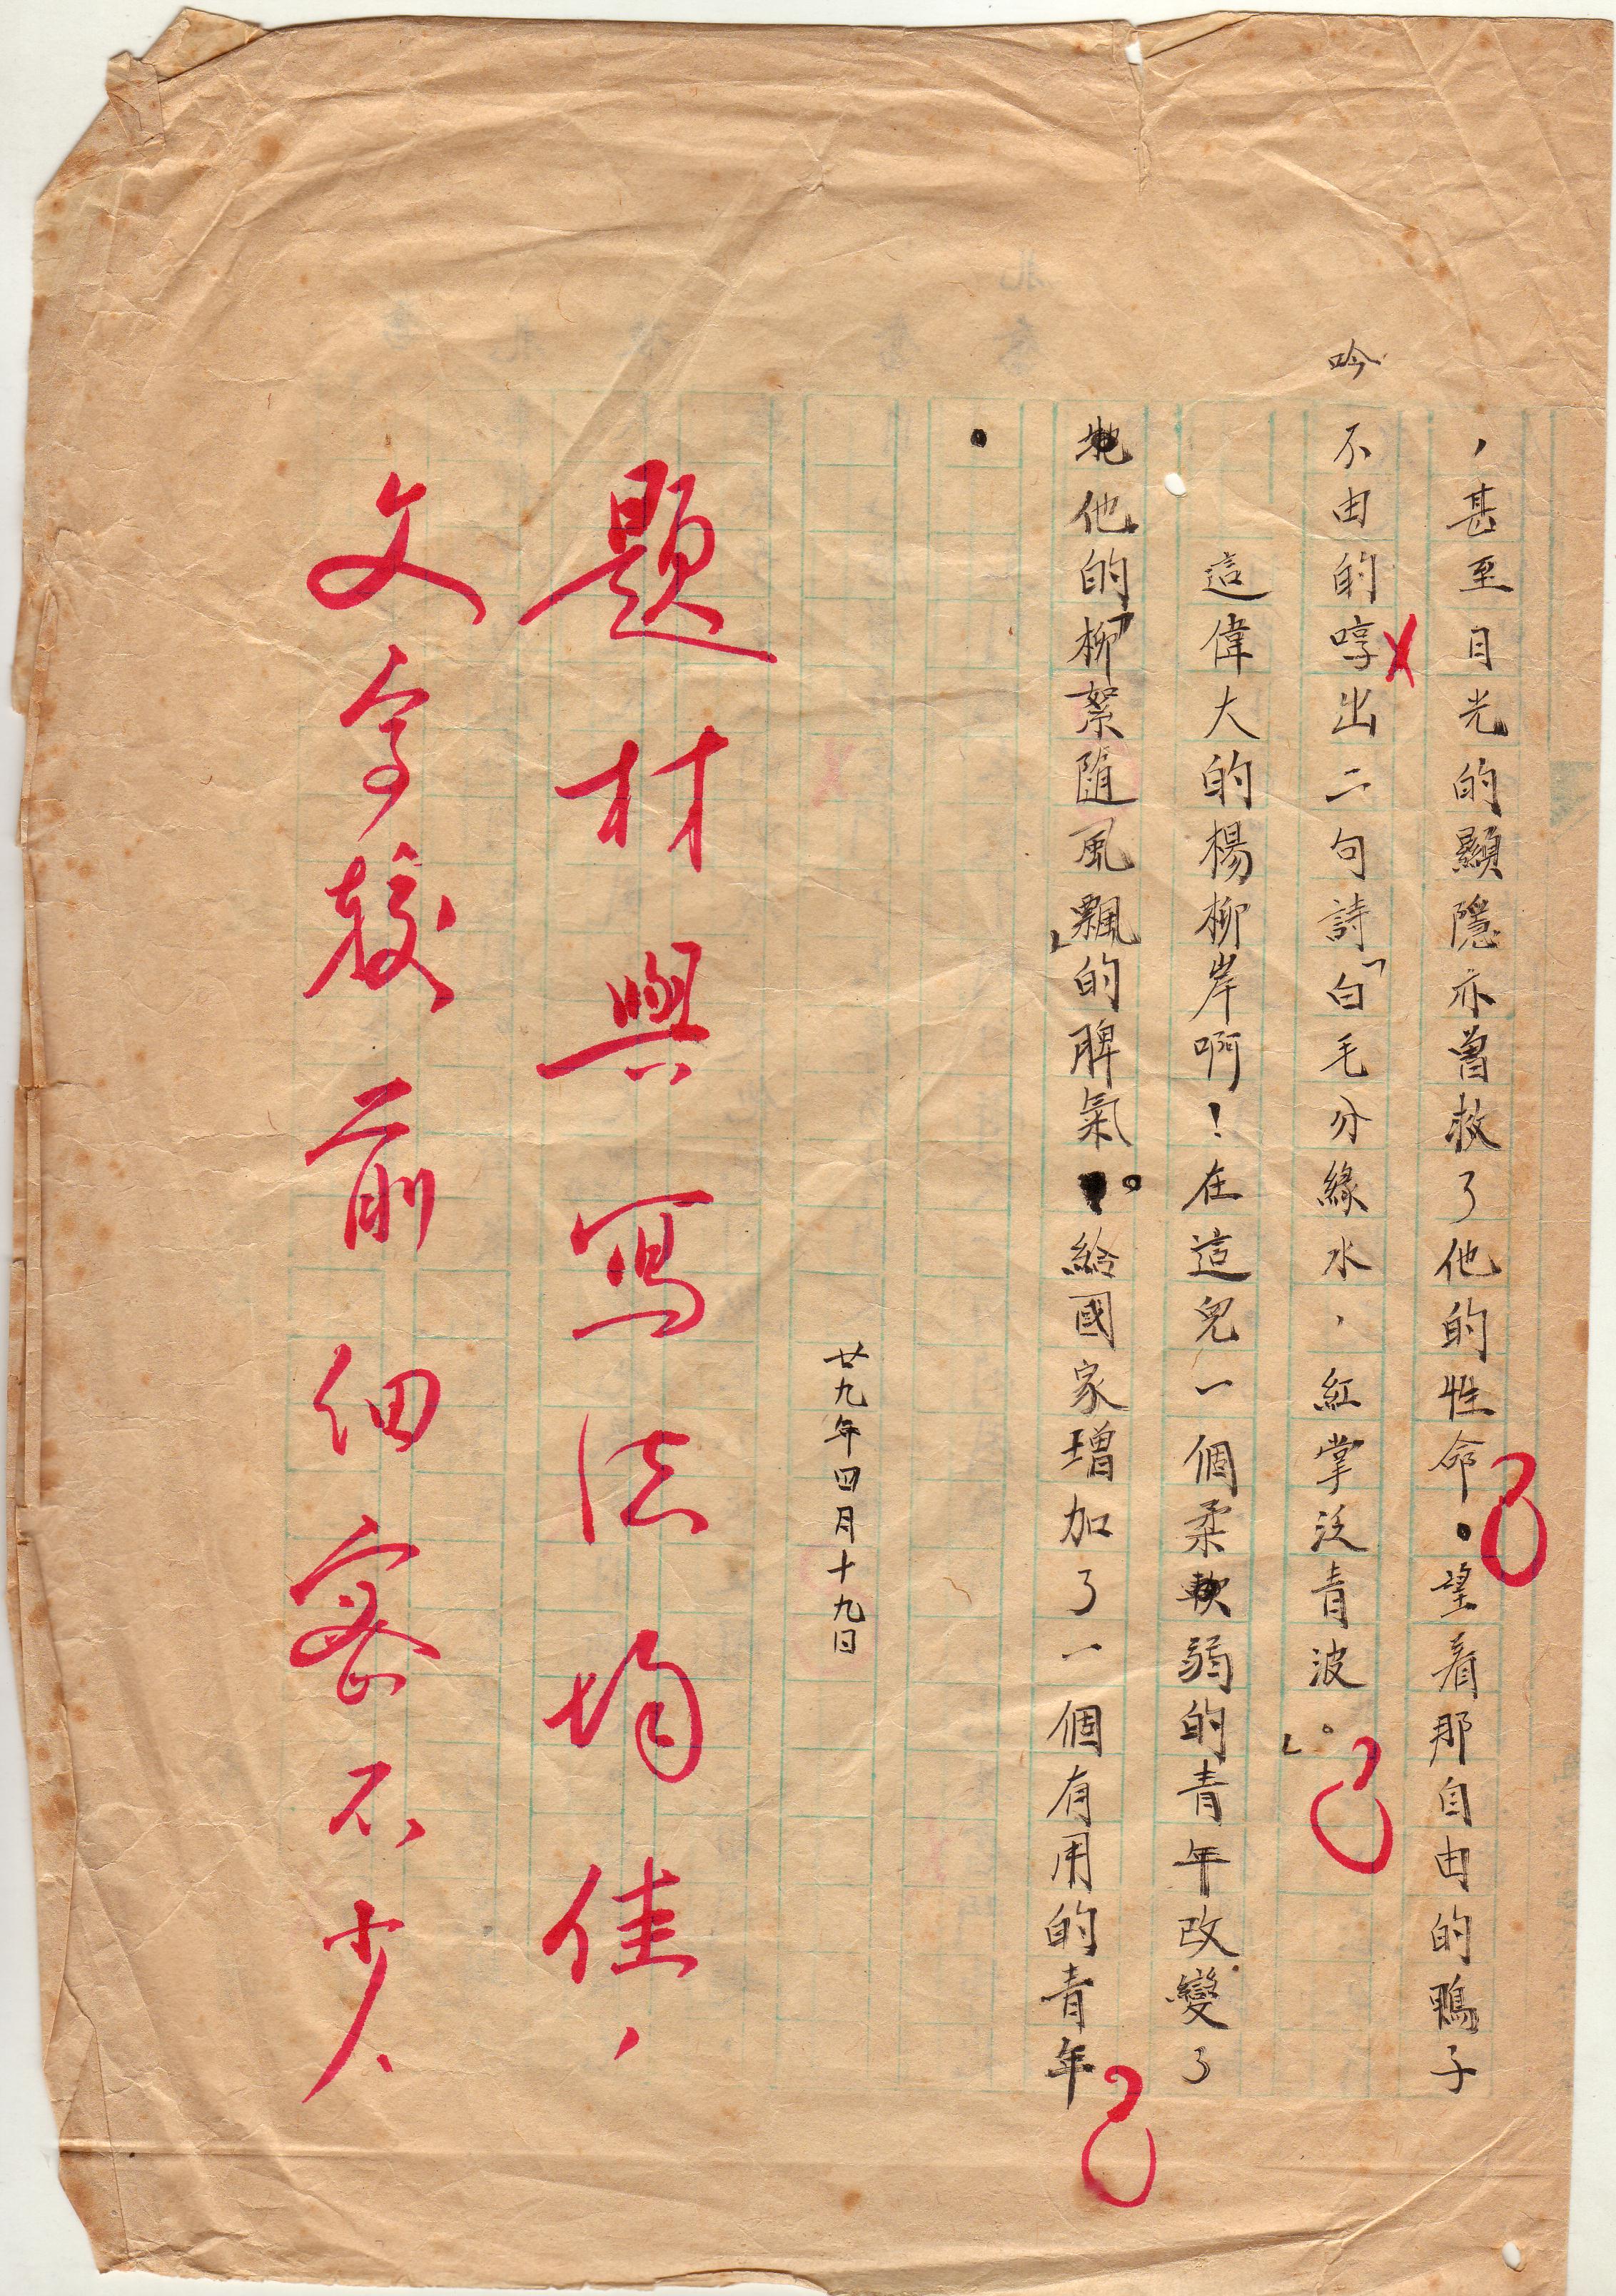 ，甚至目光的顯隱亦曾救了他的性命。望着那自由的鴨子
不由的哼出二句詩「白毛分緣水，紅掌泛青波。」
吟
這偉大的楊柳岸啊！在這兒一個柔軟弱的青年改變了
他的「柳絮隨風飄」的脾氣。給國家增加了一個有用的青年
。
廿九年四月十九日
題材與寫法均佳，
文字較前細密不少、